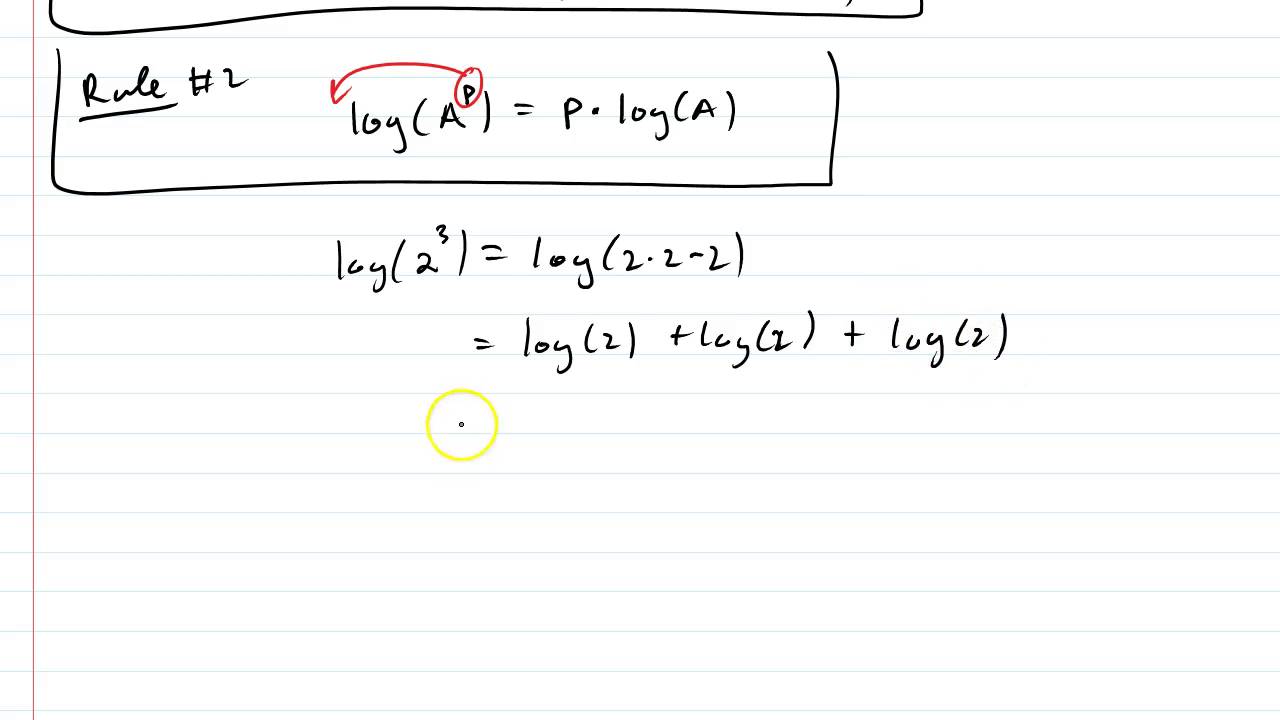 Rule #2 log(A^P) = P · log(A)
log(2^3) = log(2·2-2)
= log(2) + log(2) + log(2)